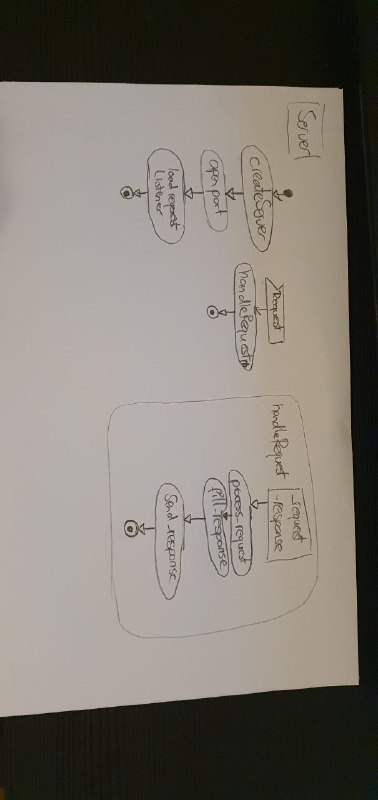 Server
createServer
open port
load request
Listener
Request
handleRequest
handleRequest
_request
-response
process_request
fill-response
Send-response